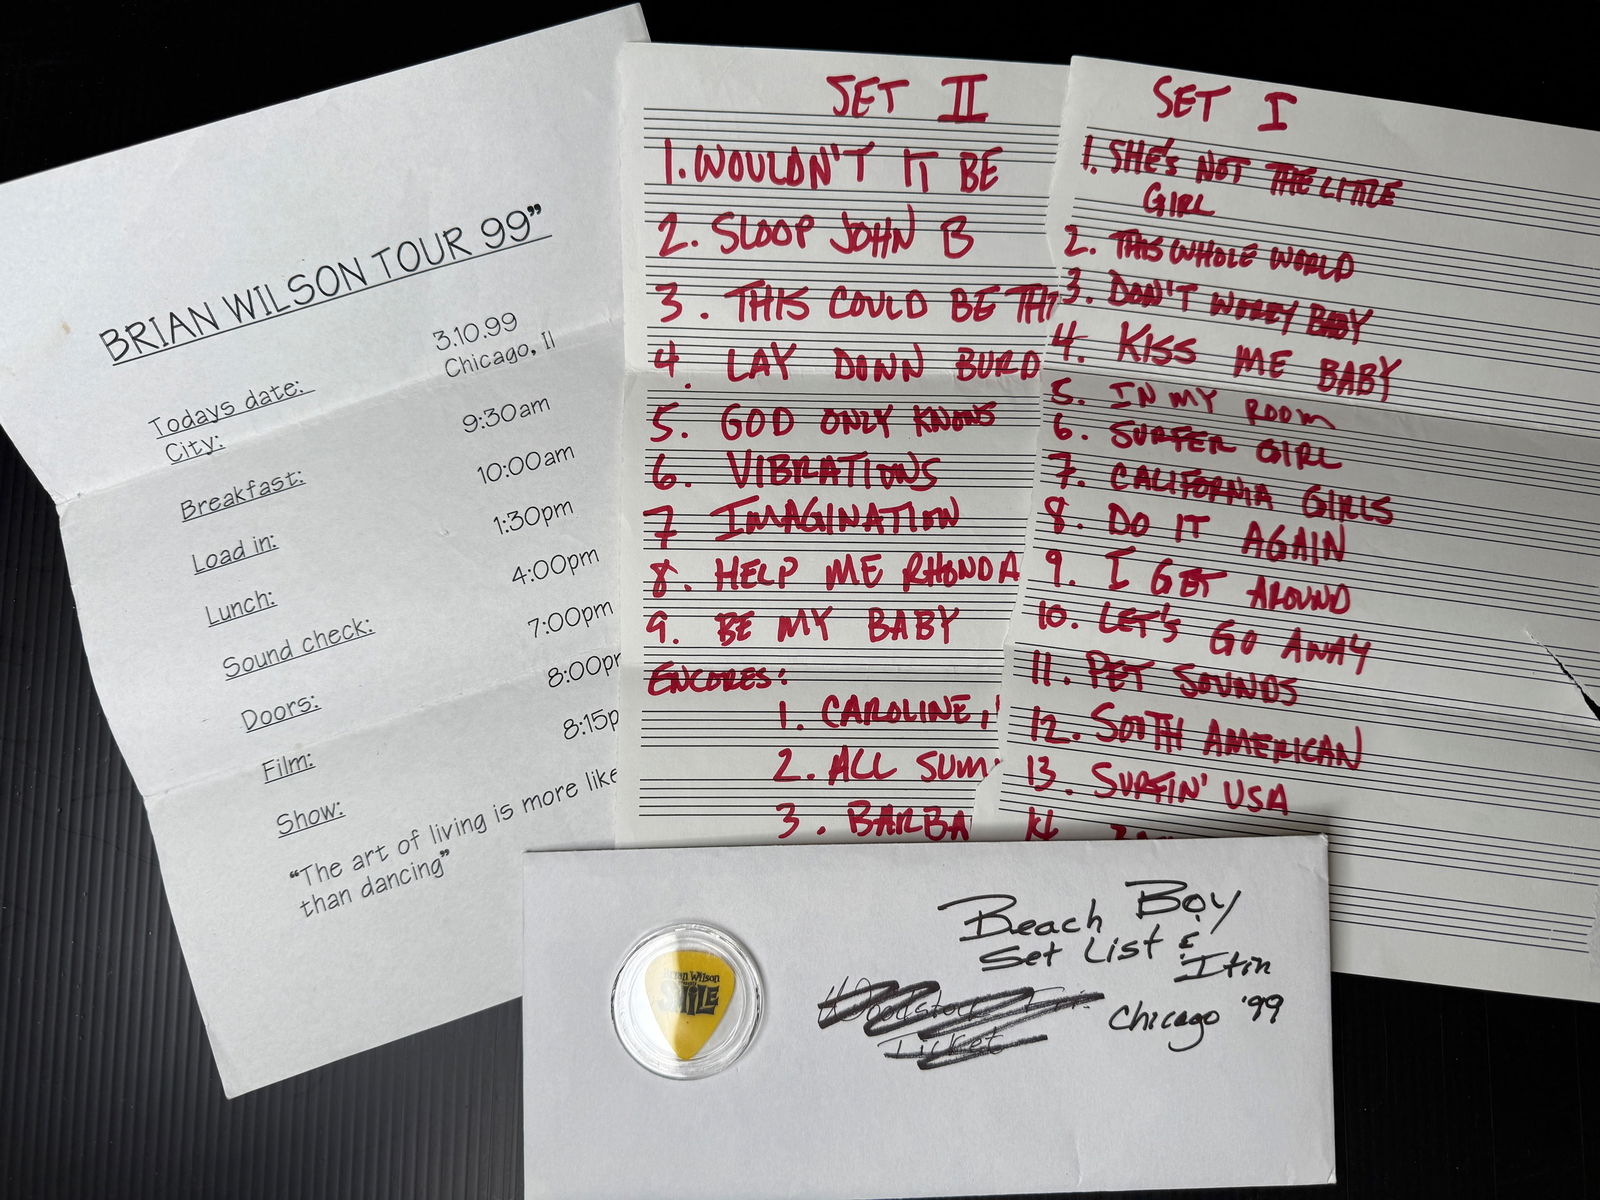 BRIAN WILSON TOUR 99"
Todays date: 3.10.99
City: Chicago, Il
Breakfast: 9:30am
Load in: 10:00am
Lunch: 1:30pm
Sound check: 4:00pm
Doors: 7:00pm
Film: 8:00p
Show: 8:15p
"The art of living is more like
than dancing"
SET II
1. WOULDN'T IT BE
2. SLOOP JOHN B
3. THIS COULD BE TH
4. LAY DOWN BURD
5. GOD ONLY KNOWS
6. VIBRATIONS
7 IMAGINATION
8. HELP ME RHONDA
9. BE MY BABY
ENCORES:
1. CAROLINE,
2. ALL SUM
3. BARBA
SET I
1. SHE'S NOT THE LITTLE
GIRL
2. THIS WHOLE WORLD
3. DON'T WORRY BABY
4. KISS ME BABY
5. IN MY ROOM
6. SURFER GIRL
7. CALIFORNIA GIRLS
8. DO IT AGAIN
9. I GET AROUND
10. LET'S GO AWAY
11. PET SOUNDS
12. SOUTH AMERICAN
13. SURFIN' USA
14
Beach Boy
Set List &
Itin
Woodstock
Ticket
Chicago '99
Brian Wilson
SMiLE